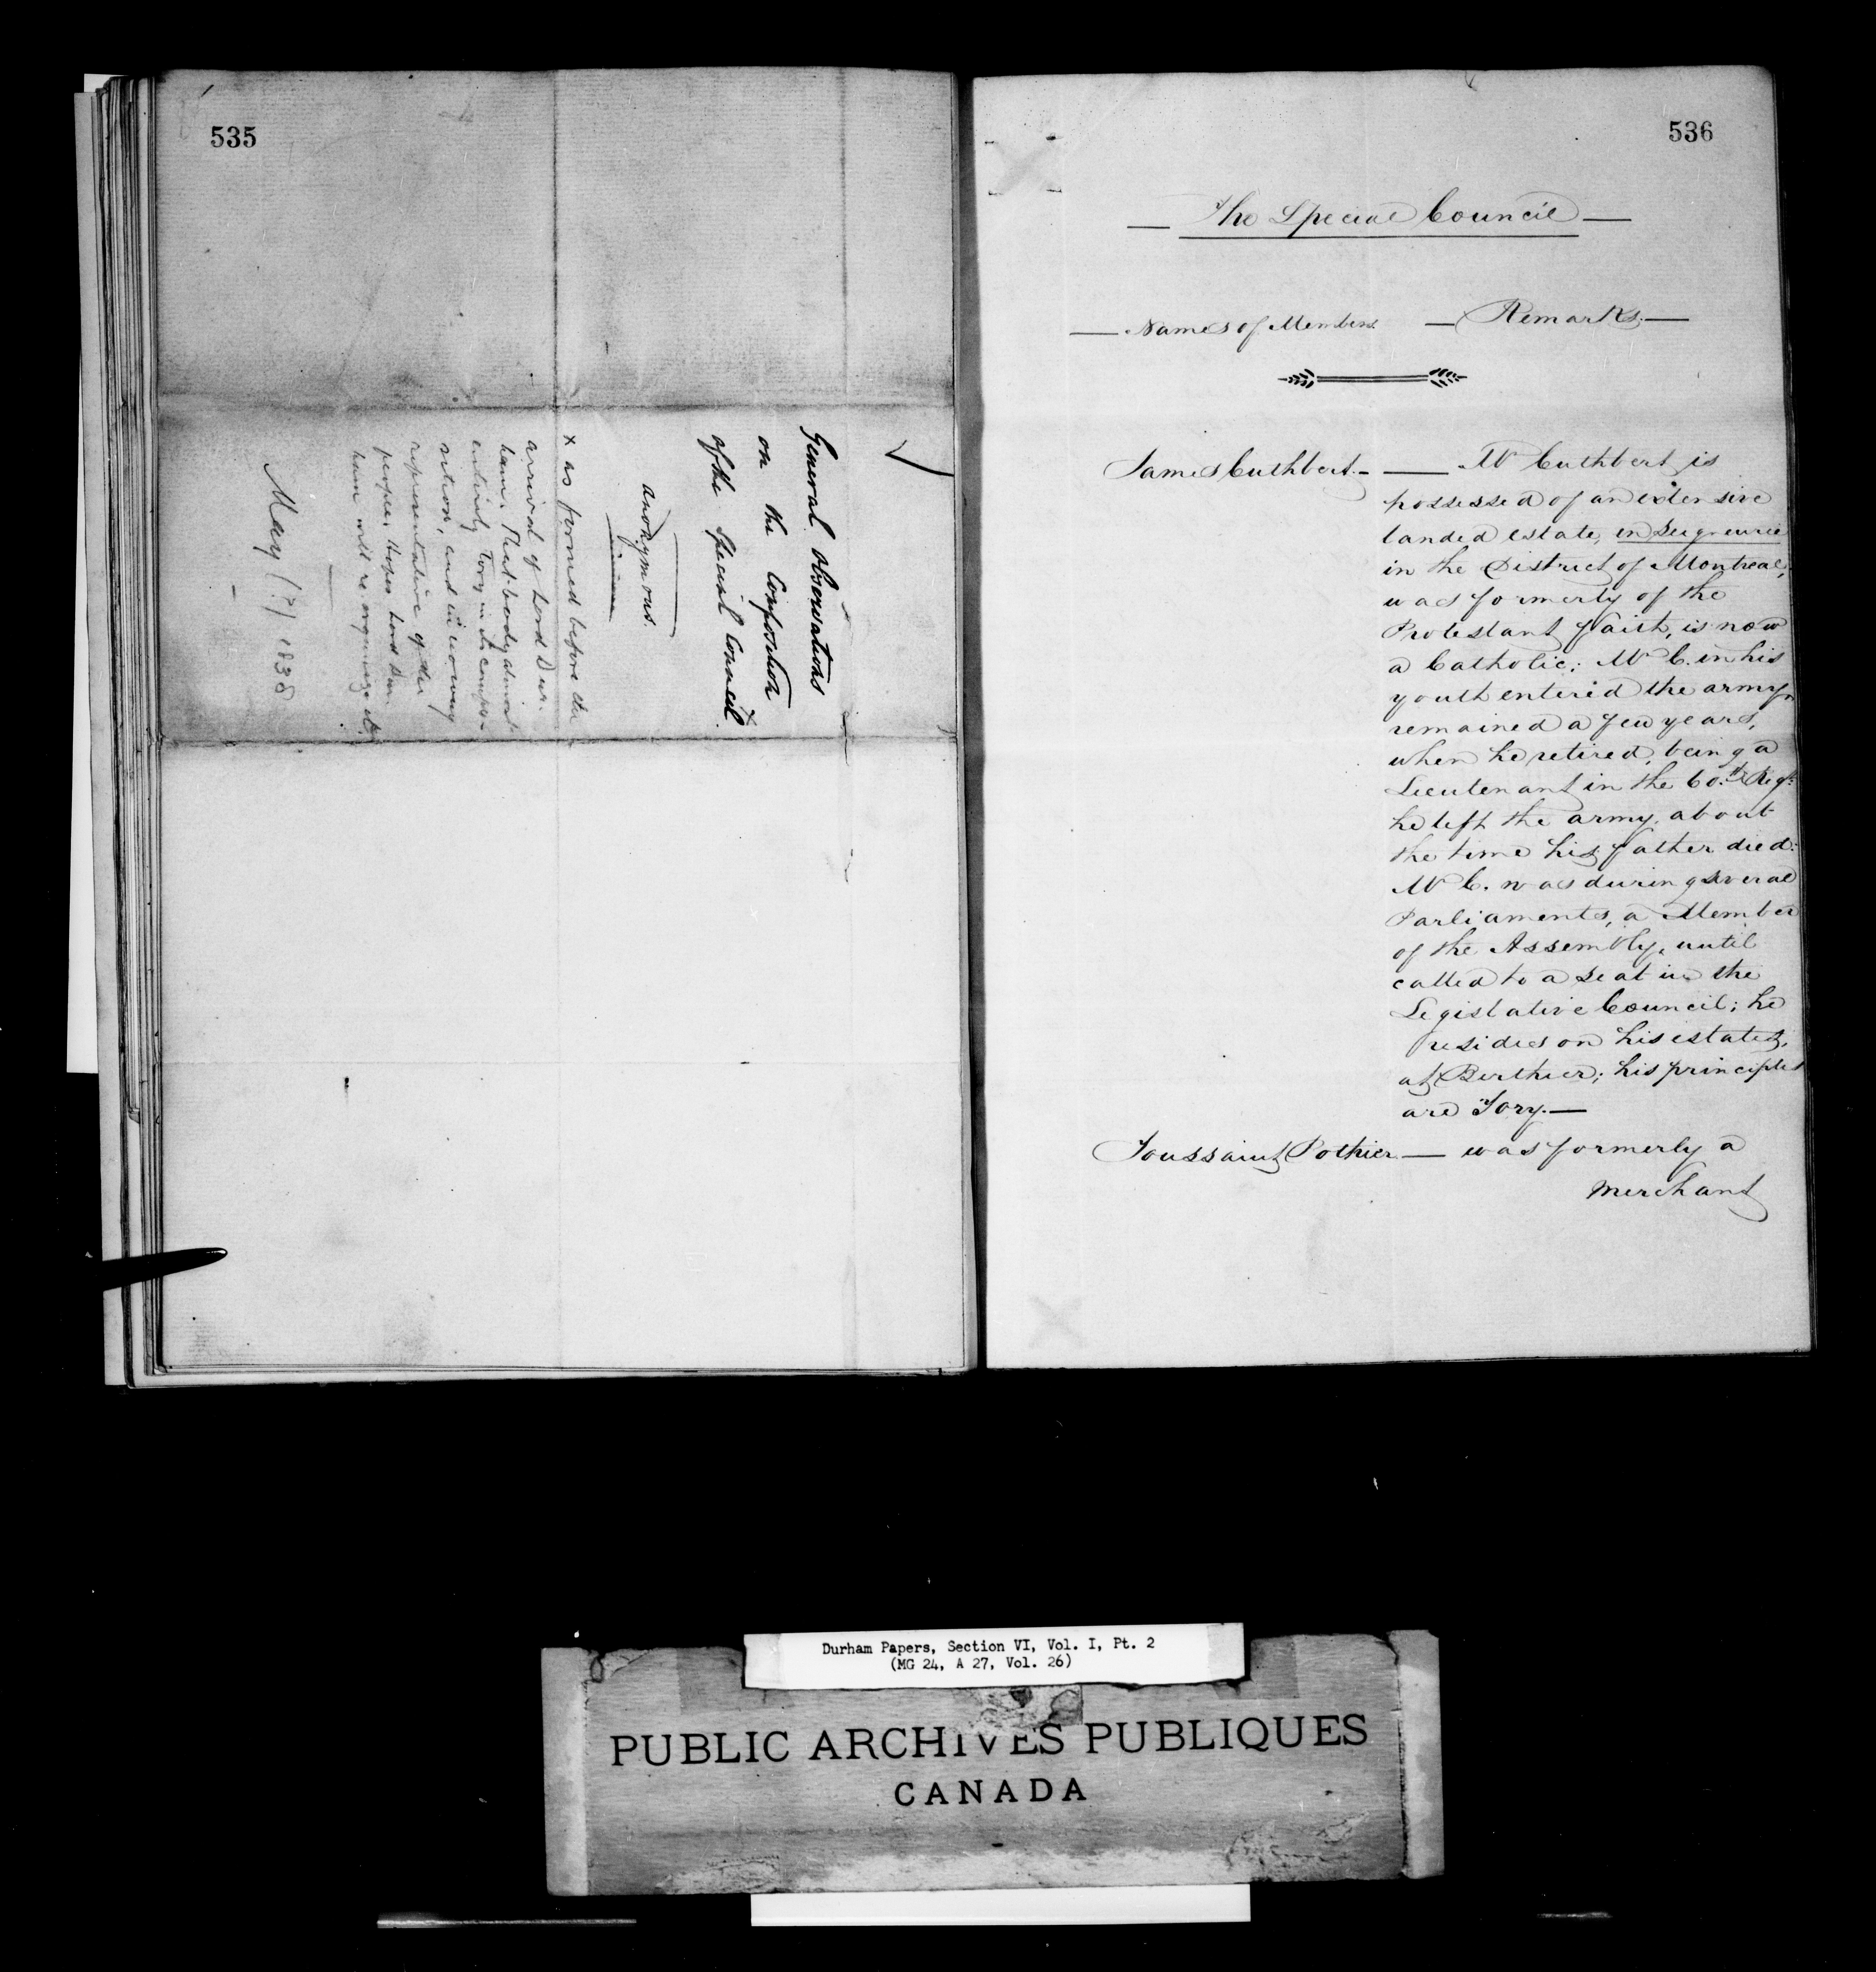 535
General Observations
on the Composition
of the Special Council. x
anonymous.
x as formed before the
arrival of Lord Dur-
ham. That body almost
entirely Tory in its compo-
sition, and in no way
representative of the
people. Hopes Lord Dur
ham will re organize it.
May (?) 1838
536
— The Special Council —
— Names of Members. — Remarks. —
James Cuthbert. — — Mr Cuthbert is
possessed of an extensive
landed estate, en Seigneurie
in the District of Montreal,
was formerly of the
Protestant faith, is now
a Catholic: Mr C. in his
youth entered the army,
remained a few years,
when he retired, being a
Lieutenant in the 60.th Regt:
he left the army, about
the time his father died:
Mr C. was during several
Parliaments, a Member
of the Assembly, until
called to a seat in the
Legislative Council; he
resides on his estates,
at Berthier; his principles
are Tory. —
Toussaint Pothier — was formerly a
Merchant
Durham Papers, Section VI, Vol. I, Pt. 2
(MG 24, A 27, Vol. 26)
PUBLIC ARCHIVES PUBLIQUES
CANADA